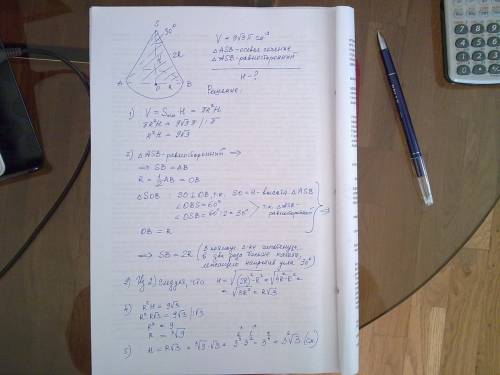 S
30°
2R
H
A
O
R
B
V = 9√3π см³
△ASB - осевое сечение
△ASB - равносторонний
H - ?
Решение:
1) V = Sосн H = πR²H
πR²H = 9√3π |:π
R²H = 9√3
2) △ASB - равносторонний ⟹
⟹ SB = AB
R = ½AB = OB
△SOB : SO⊥OB, т.к. SO = H - высота △ASB
∠OBS = 60°
∠OSB = 60°:2 = 30°
т.к. △ASB - равносторонний
⟹
OB = R
⟹ SB = 2R (в прямоуг. △-ке гипотенуза в два раза больше катета, лежащего напротив угла 30°)
3) Из 2) следует, что H = √((2R)² - R²) = √(4R² - R²) =
= √(3R²) = R√3
4) R²H = 9√3
R²·R√3 = 9√3 |:√3
R³ = 9
R = ³√9
5) H = R√3 = ³√9·√3 =
(см)